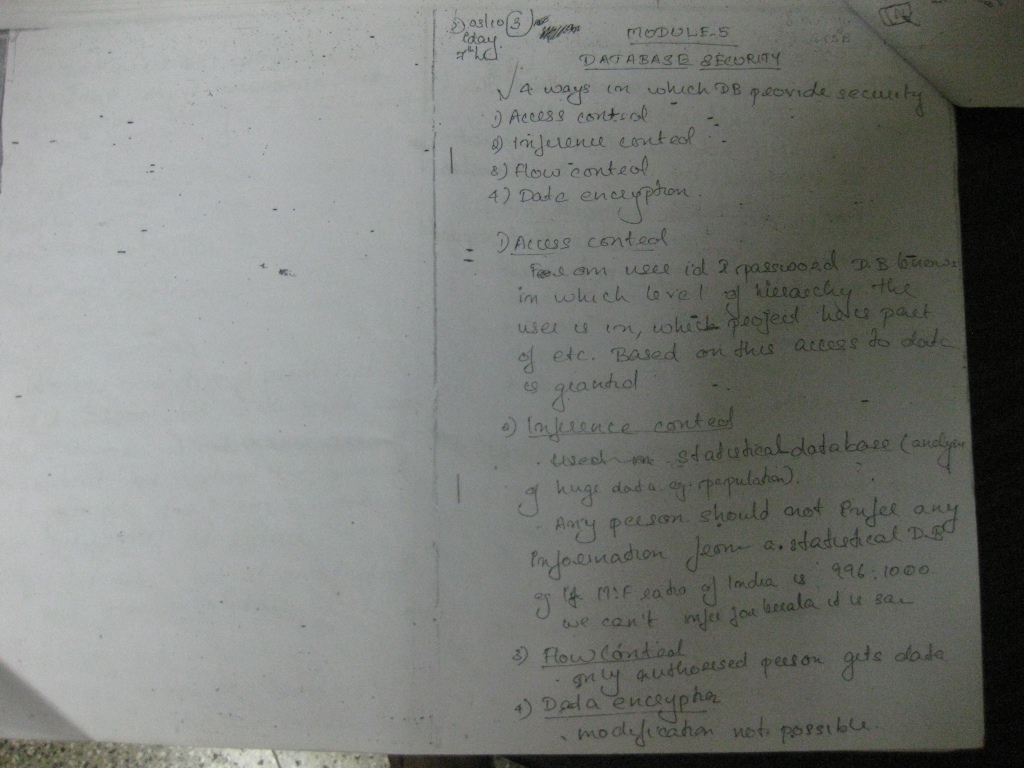 3
MODULE-5
DATABASE SECURITY
4 ways in which DB provide security
1) Access control
2) Inference control
3) Flow control
4) Data encryption.
1) Access control
From user id & password DB knows
in which level of hierarchy the
user is in, which project he is part
of etc. Based on this access to data
is granted
2) Inference control
. used in statistical database (analysis
of huge data eg. population).
- Any person should not infer any
information from a statistical DB
eg If M:F ratio of India is 996:1000
we can't infer for kerala it is same
3) Flow control
. only authorised person gets data
4) Data encryption
. modification not possible.